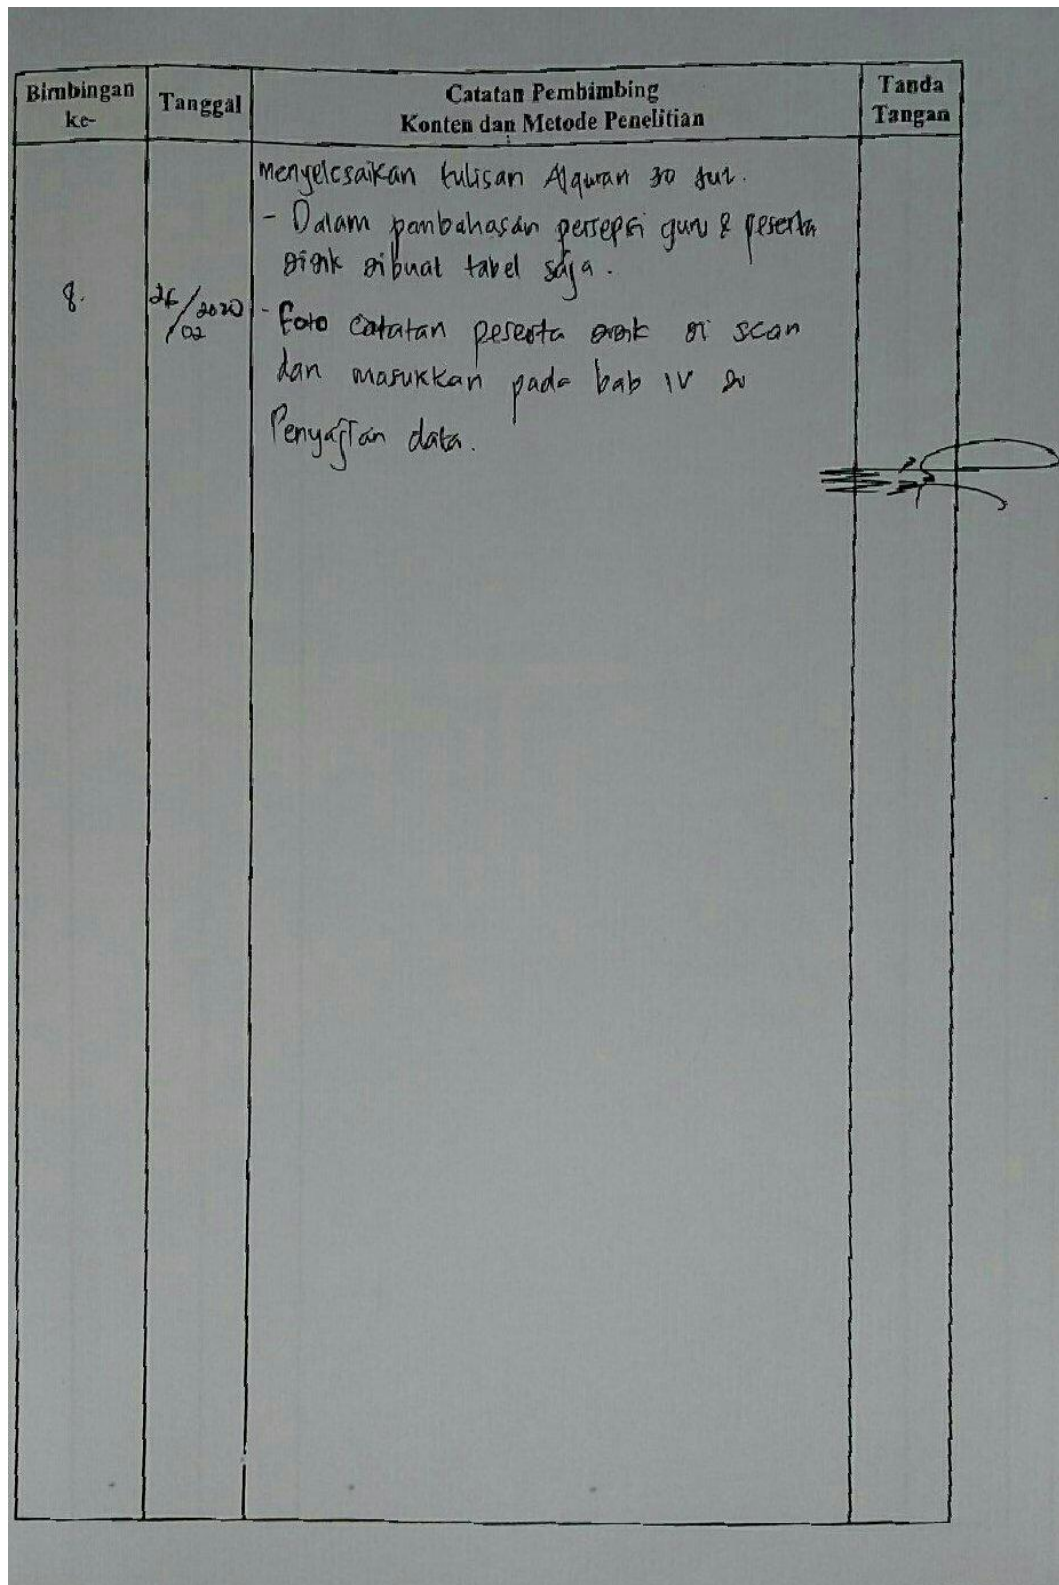 Bimbingan ke-
Tanggal
Catatan Pembimbing
Konten dan Metode Penelitian
Tanda Tangan
menyelesaikan tulisan Alquran 30 juz.
- Dalam panbahasan persepsi guru & peserta
didik dibuat tabel saja.
8.
26/02/2020
- Foto catatan peserta didik di scan
dan masukkan pada bab IV di
Penyajian data.